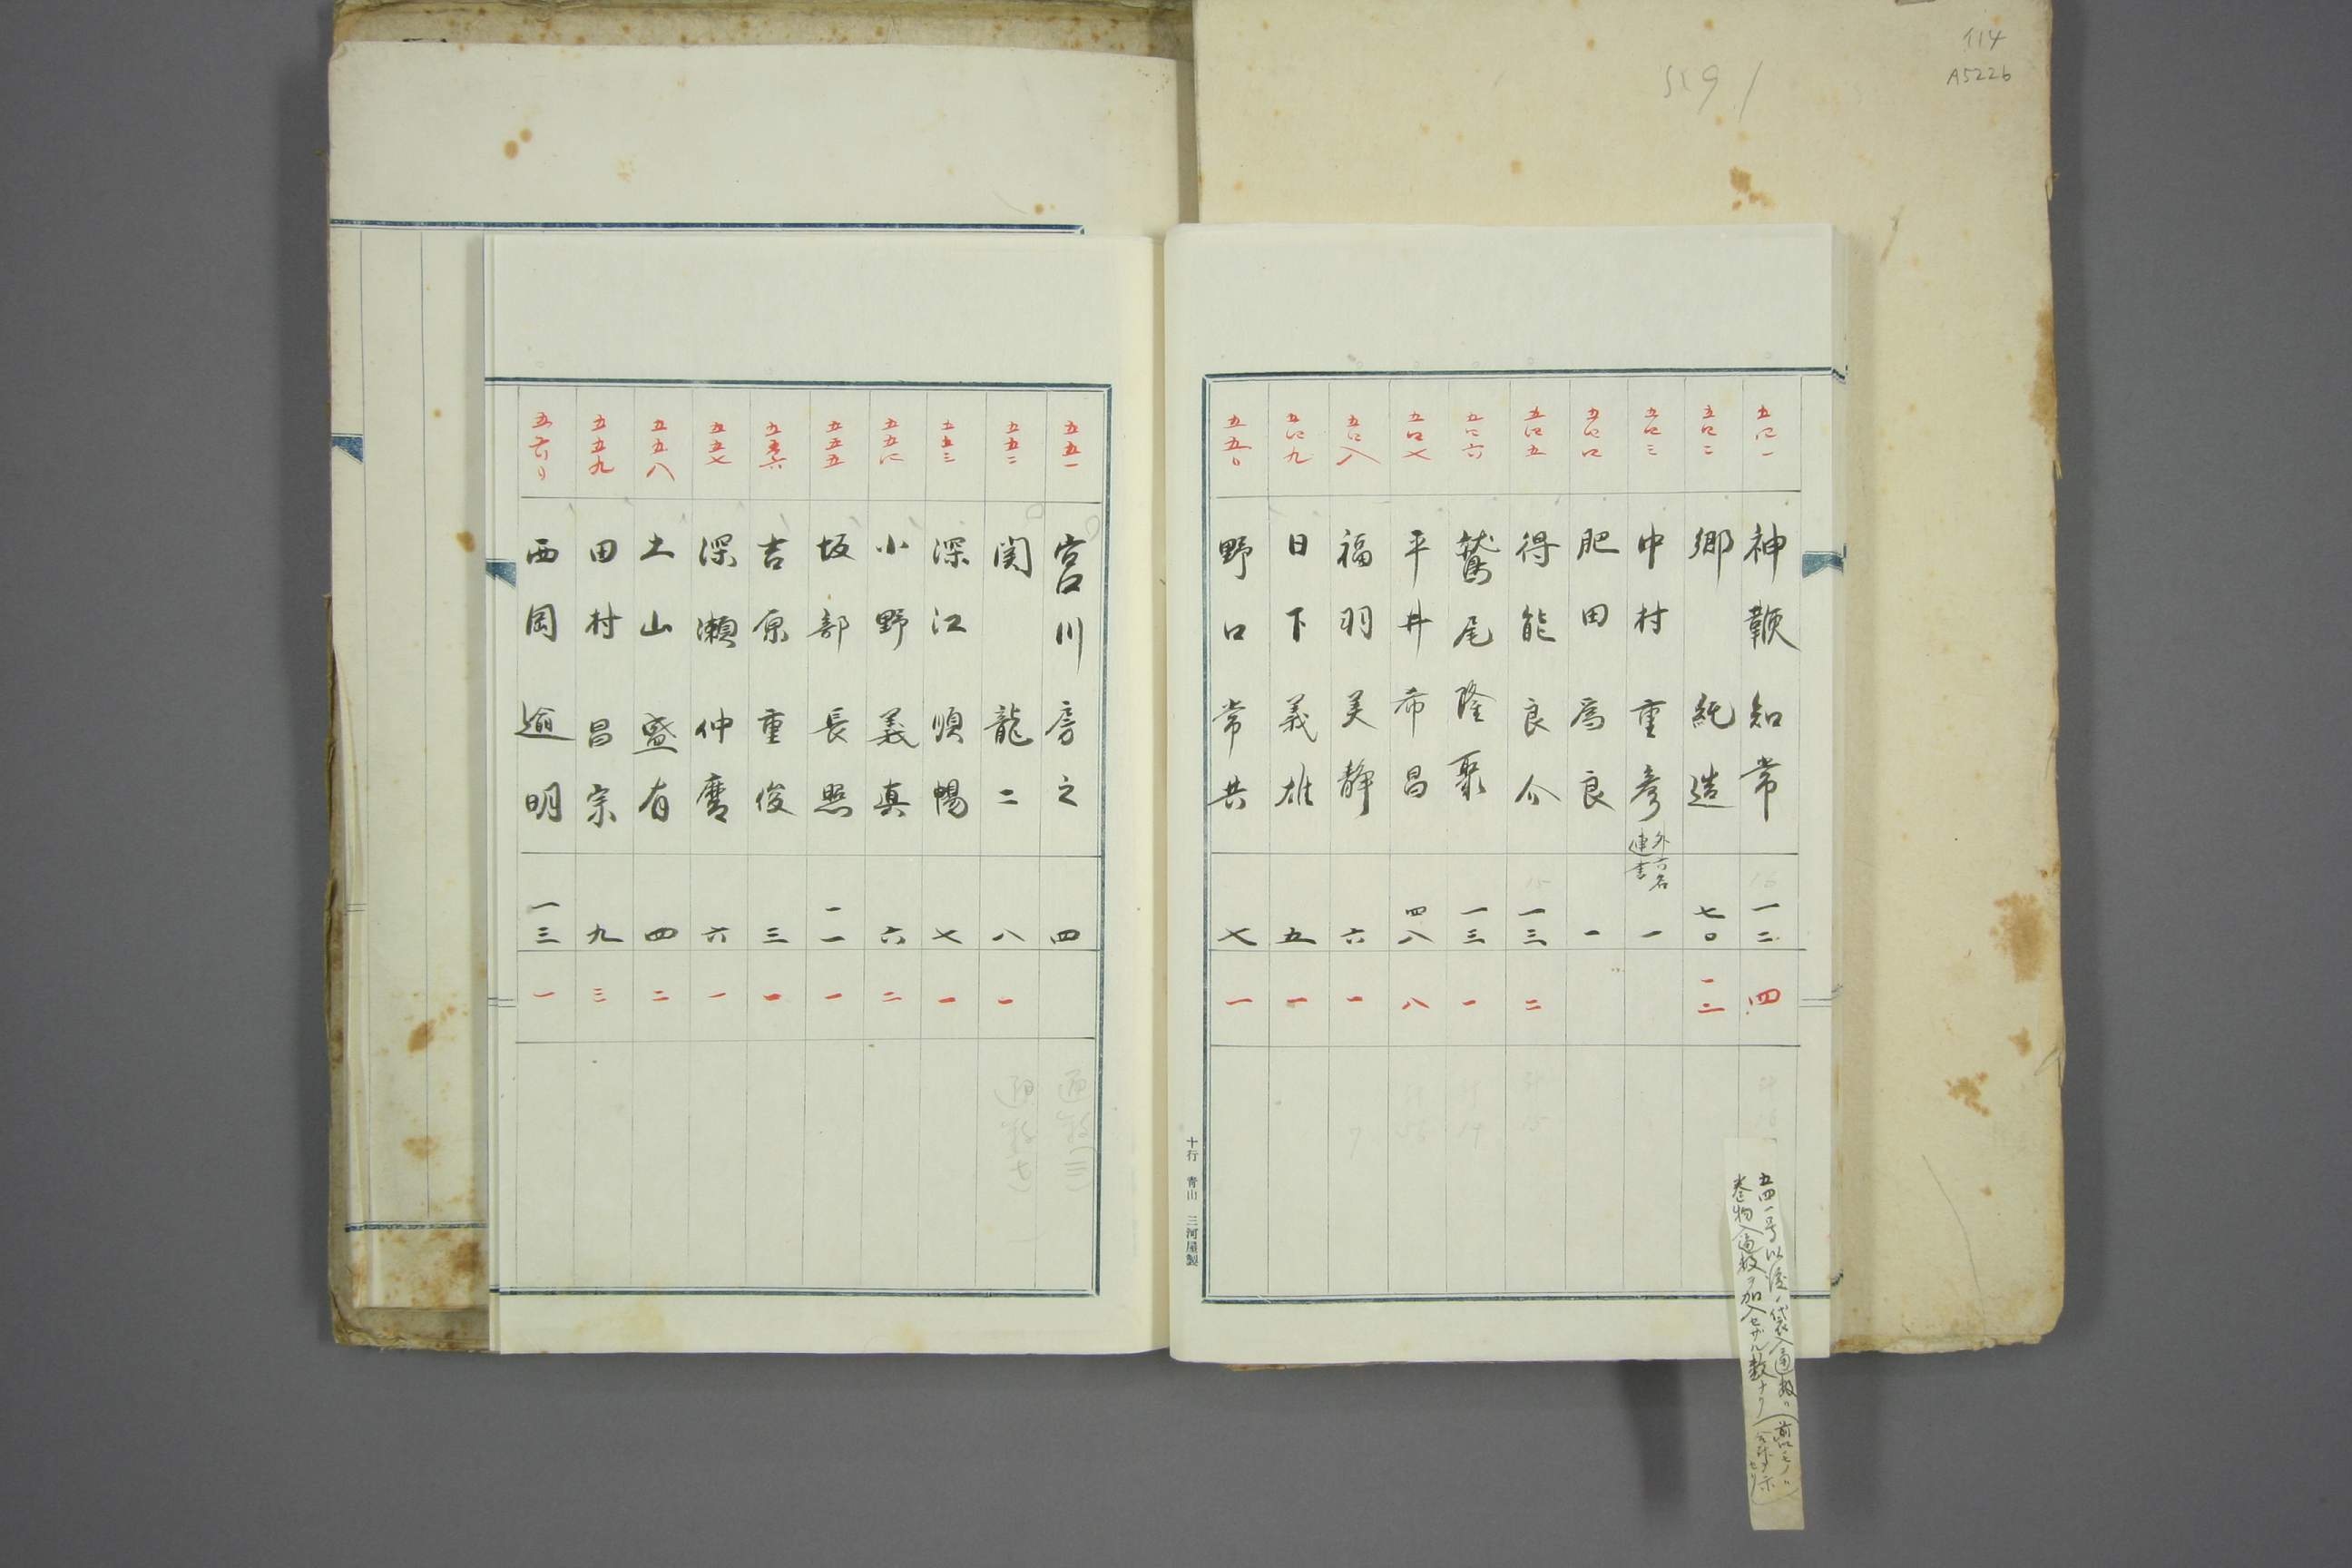 114
A5226
五四一 神鞭知常 一二 四
五四二 郷純造 七〇 一二
五四三 中村重彦 外六名連書 一
五四四 肥田為良 一
五四五 得能良介 一三 二
五四六 鷲尾隆聚 一三 一
五四七 平井希昌 四八 八
五四八 福羽美静 六 一
五四九 日下義雄 五 一
五五〇 野口常共 七 一
十行 青山 三河屋製
五四一号以後ノ袋入通数ハ
巻物入通数ヲ加入セザル数ナリ
五五一 宮川房之 四
五五二 関龍二 八 一
五五三 深江順暢 七 一
五五四 小野義真 六 二
五五五 坂部長照 二一 一
五五六 吉原重俊 三 一
五五七 深瀬仲麿 六 一
五五八 土山盛有 四 二
五五九 田村昌宗 九 三
五六〇 西岡逾明 一三 一
通数(三)
通数(七)